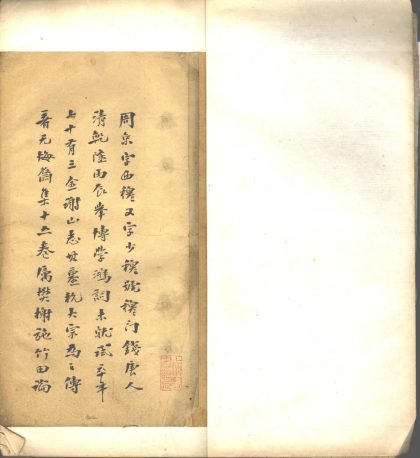 周京字西穆又字少穆號穆门錢唐人
清乾隆丙辰舉博學鴻詞未就試卒年
七十有三全謝山志其墓杭大宗為之傳
著无悔齋集十五卷厲樊榭施竹田